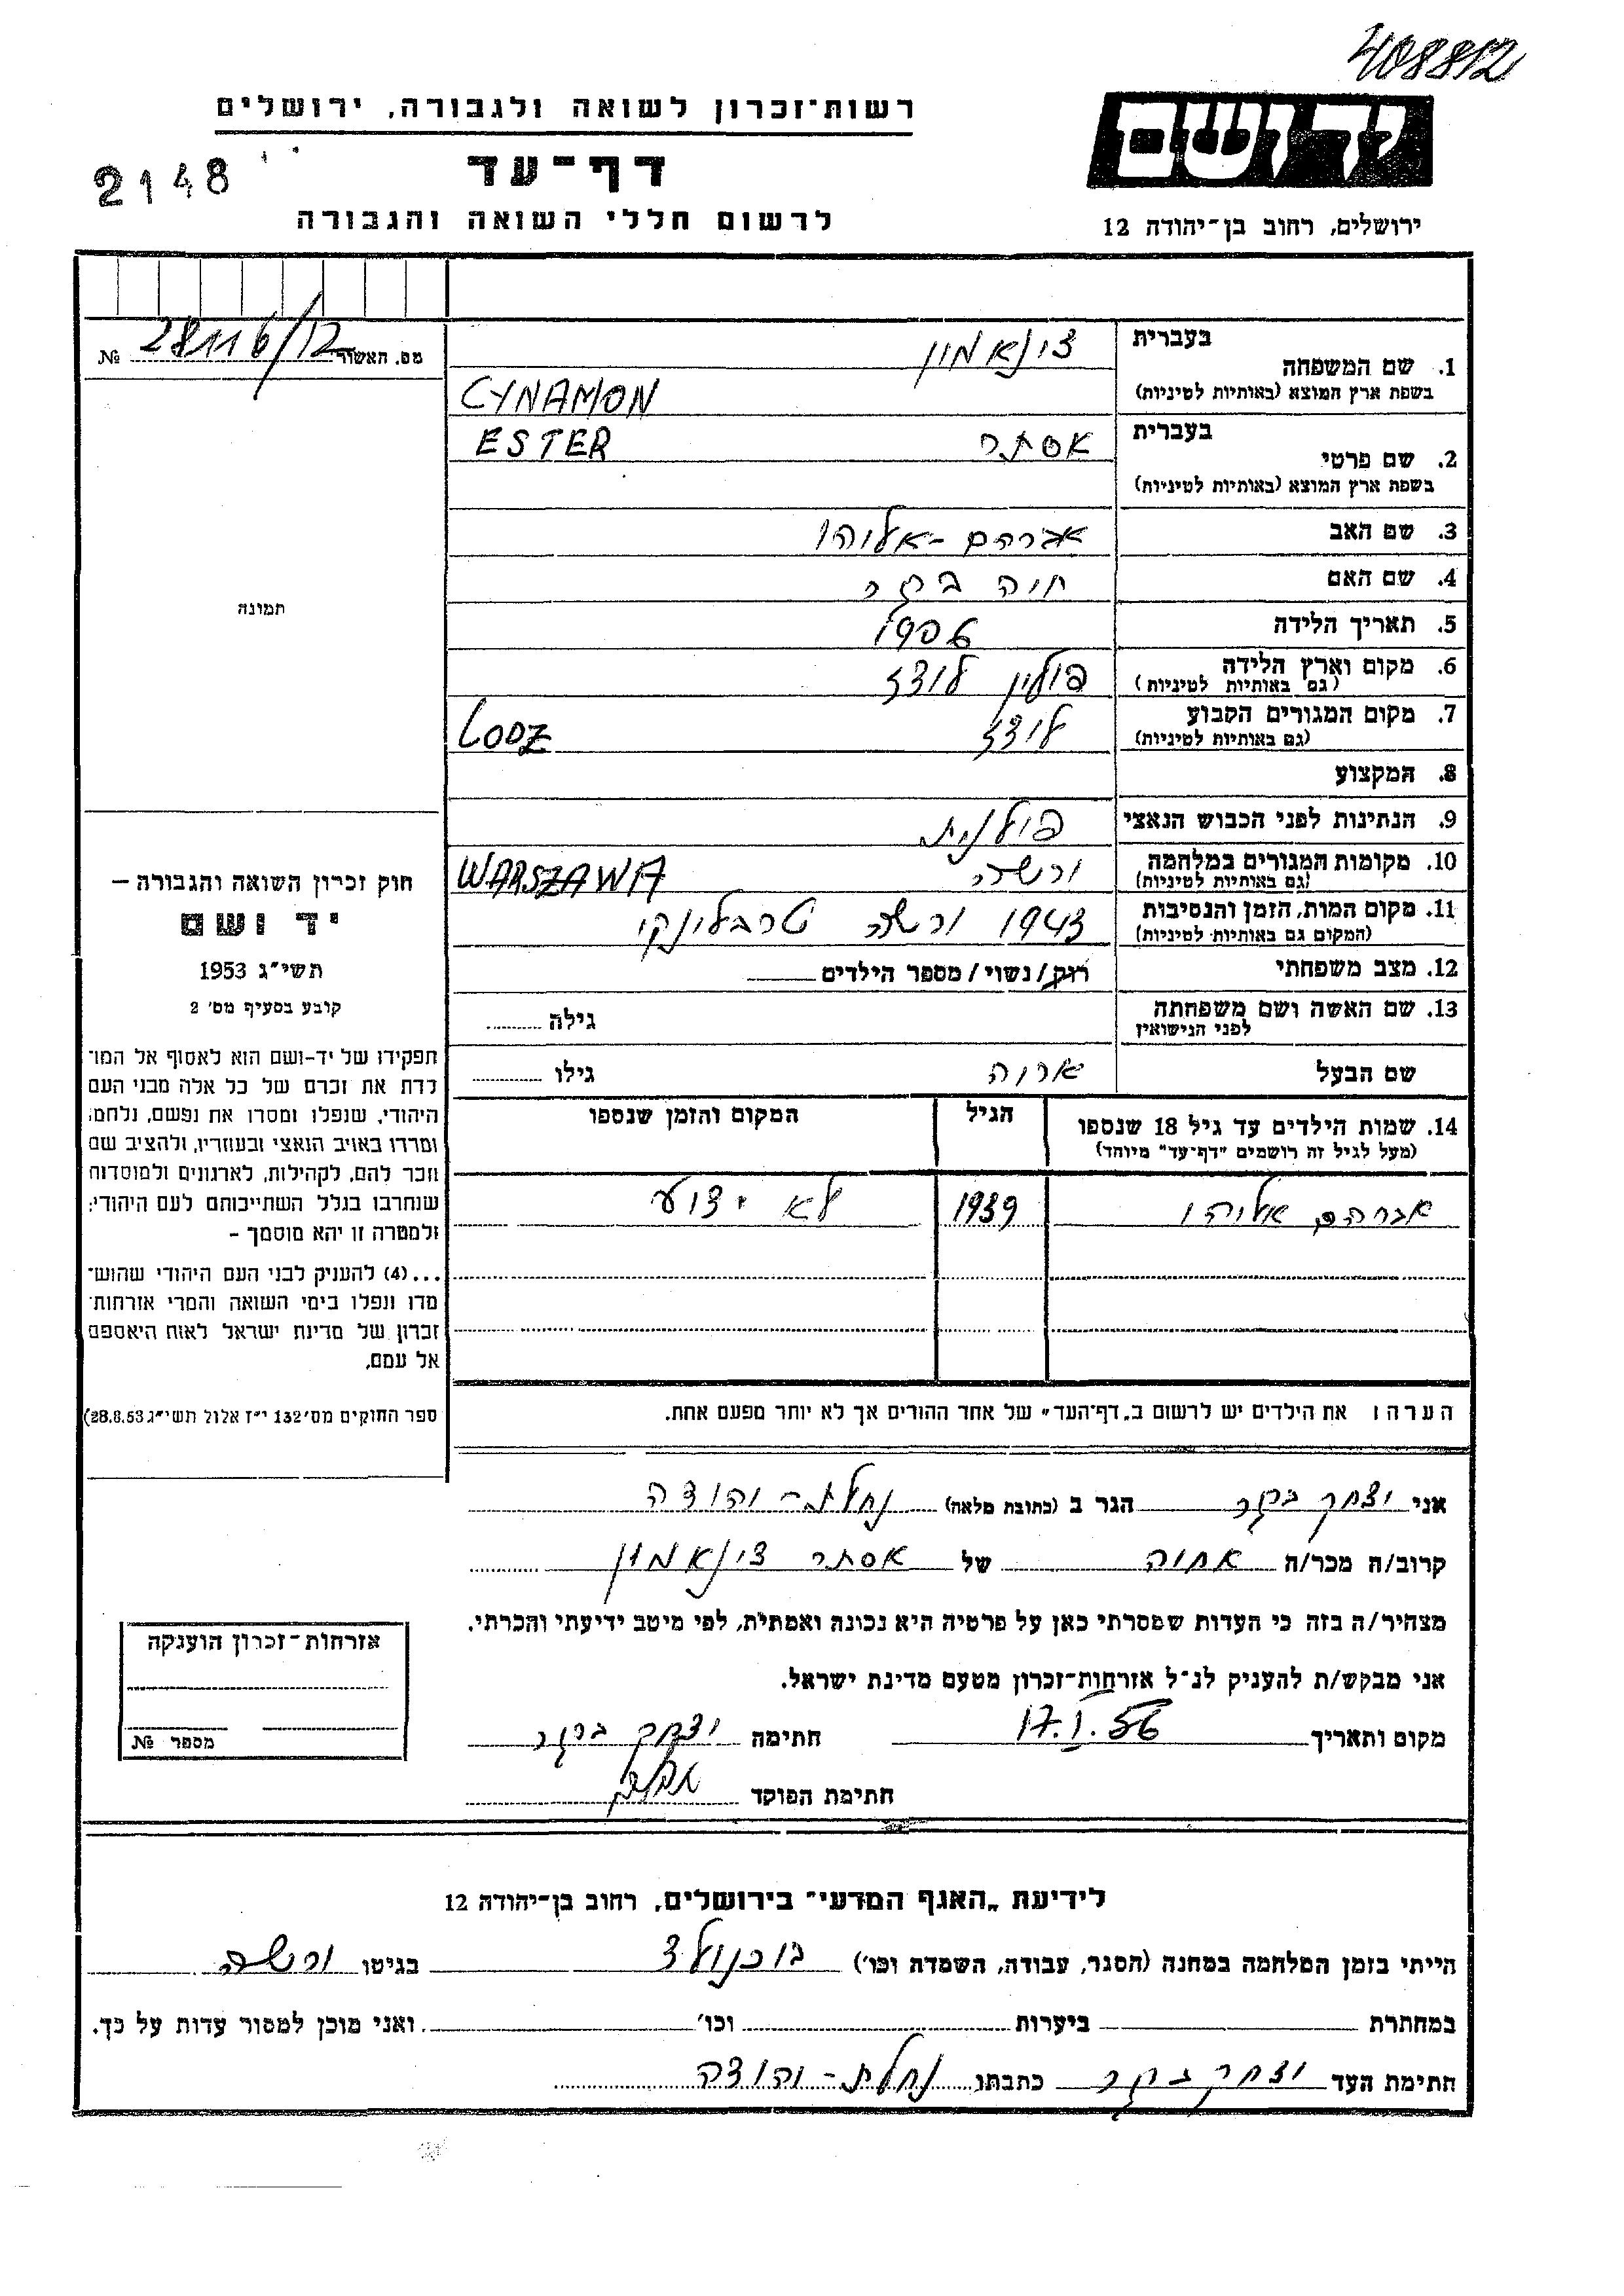 408812
רשות־זכרון לשואה ולגבורה, ירושלים
יד ושם
דף־עד
2148
לרשום חללי השואה והגבורה
ירושלים, רחוב בן־יהודה 12
מס. האשור 28116/12 №
בעברית צינאמון
1. שם המשפחה
בשפת ארץ המוצא (באותיות לטיניות) CYNAMON
בעברית אסתר ESTER
2. שם פרטי
בשפת ארץ המוצא (באותיות לטיניות)
3. שם האב אברהם-אליהו
4. שם האם חיה
5. תאריך הלידה 1906
6. מקום וארץ הלידה פולין לודז
(גם באותיות לטיניות)
7. מקום המגורים הקבוע לודז LODZ
(גם באותיות לטיניות)
8. המקצוע
9. הנתינות לפני הכבוש הנאצי פולנית
10. מקומות המגורים במלחמה ורשה WARSZAWA
(גם באותיות לטיניות)
11. מקום המות, הזמן והנסיבות 1943 ורשה טרבלינקי
(המקום גם באותיות לטיניות)
12. מצב משפחתי רוק/נשוי/מספר הילדים
13. שם האשה ושם משפחתה גילה
לפני הנישואין
שם הבעל גילו
14. שמות הילדים עד גיל 18 שנספו הגיל המקום והזמן שנספו
(מעל לגיל זה רושמים "דף־עד" מיוחד)
אברהם אליהו 1939 לא ידוע
הערה: את הילדים יש לרשום ב„דף־העד" של אחד ההורים אך לא יותר מפעם אחת.
תמונה
חוק זכרון השואה והגבורה —
יד ושם
תשי"ג 1953
קובע בסעיף מס' 2
תפקידו של יד-ושם הוא לאסוף אל המו־
לדת את זכרם של כל אלה מבני העם
היהודי, שנפלו ומסרו את נפשם, נלחמו
ומרדו באויב הנאצי ובעוזריו, ולהציב שם
וזכר להם, לקהילות, לארגונים ולמוסדות
שנחרבו בגלל השתייכותם לעם היהודי;
ולמטרה זו יהא מוסמך –
...(4) להעניק לבני העם היהודי שהוש־
מדו ונפלו בימי השואה והמרי אזרחות־
זכרון של מדינת ישראל לאות היאספם
אל עמם.
ספר החוקים מס' 132 י"ז אלול תשי"ג 28.8.53)
אני יצחק בקר הגר ב (כתובת מלאה) נחלת-יהודה
קרוב/ה מכר/ה אחיה של אסתר צינאמון
מצהיר/ה בזה כי העדות שמסרתי כאן על פרטיה היא נכונה ואמתית, לפי מיטב ידיעתי והכרתי.
אני מבקש/ת להעניק לנ"ל אזרחות־זכרון מטעם מדינת ישראל.
מקום ותאריך 17.I.56 חתימה יצחק בקר
חתימת הפוקד
אזרחות־זכרון הוענקה
מספר №
לידיעת „האגף המדעי" בירושלים, רחוב בן־יהודה 12
הייתי בזמן המלחמה במחנה (הסגר, עבודה, השמדה וכו') בוכנולד בגיטו ורשה
במחתרת ביערות וכו' ואני מוכן למסור עדות על כך.
חתימת העד יצחק בקר כתבתו נחלת-יהודה